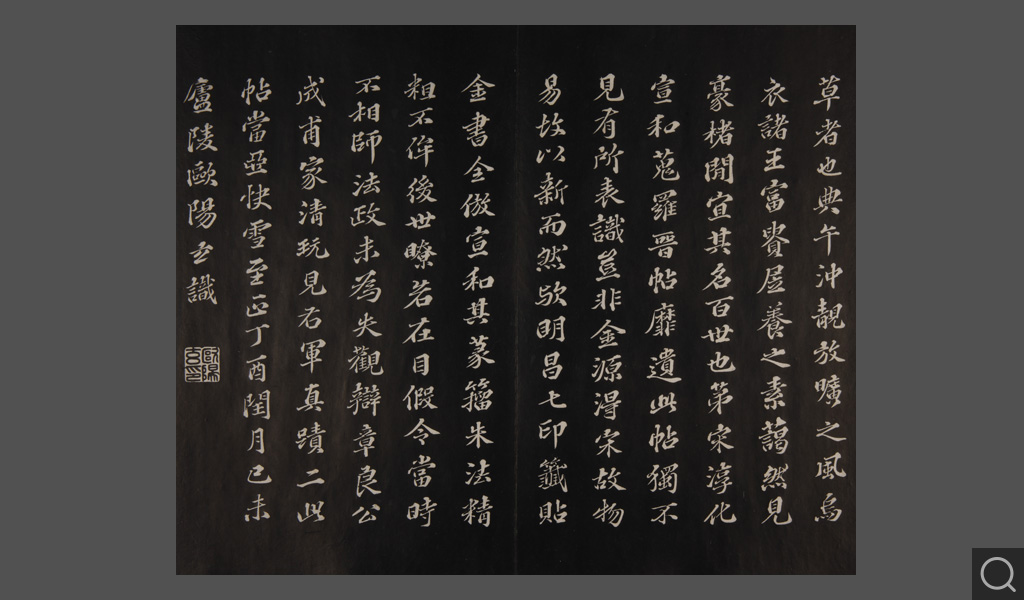 草者也典午沖靚放曠之風烏
衣諸王富貴居養之素藹然見
豪楮間宣其名百世也第宋淳化
宣和蒐羅晉帖靡遺此帖獨不
見有所表識豈非金源淂宋故物
易故以新而然歟明昌七印籤貼
金書全倣宣和其篆籀朱法精
粗不侔後世瞭若在目假令當時
不相師法政未為失觀辯章良公
成甫家清玩見右軍真蹟二此
帖當亞快雪至正丁酉閏月己未
廬陵歐陽玄識